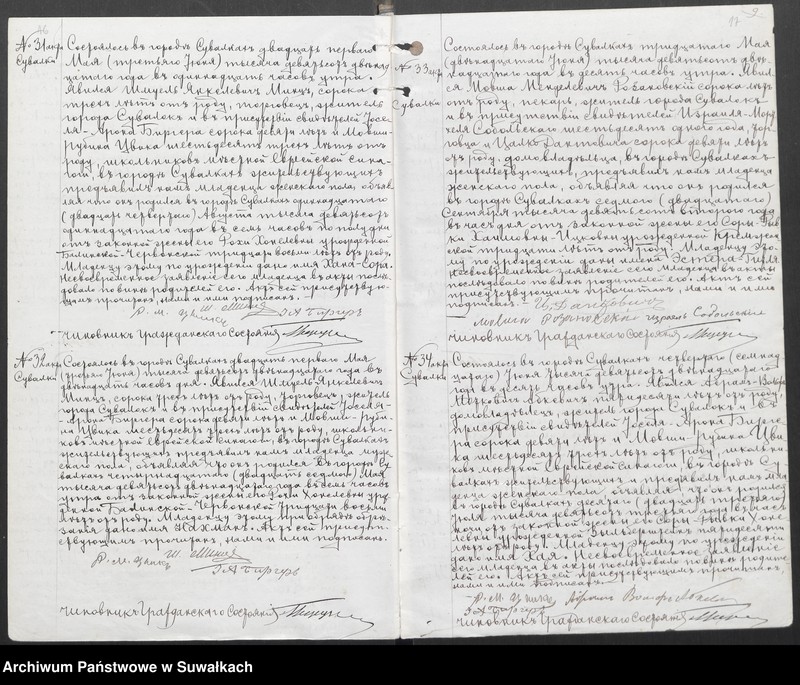 16
№ 31 акт
Сувалки
Состоялось въ городѣ Сувалкахъ двадцать перваго
Мая (третьяго Іюня) тысяча девятьсотъ двѣнад-
цатаго года въ одиннадцать часовъ утра.
Явился Шмуель Янкелевичъ Минцъ, сорока
трехъ лѣтъ отъ роду, торговецъ, житель
города Сувалокъ и въ присутствіи свидѣтелей Іосе-
ля-Арона Биргера сорока девяти лѣтъ и Мовши-
Рубина Цвика шестьдесятъ трехъ лѣтъ отъ
роду, школьниковъ мѣстной Еврейской сина-
гоги, въ городѣ Сувалкахъ жительствующихъ
предъявилъ намъ младенца женскаго пола, объяв-
ляя что онъ родился въ городѣ Сувалкахъ одиннадцатаго
(двадцать четвертаго) Августа тысяча девятьсотъ
одиннадцатаго года въ семь часовъ по полудни
отъ законной жены его Рохи Хонелевны урожденной
Балинской-Червонской тридцать восьми лѣтъ отъ роду.
Младенцу этому по урожденіи дано имя Хана-Сора.
Несвоевременное заявленіе сего младенца въ акты послѣ-
довало по винѣ родителей его. Актъ сей присутствую-
щимъ прочитанъ, нами и ими подписанъ. -
Чиновникъ Гражданскаго Состоянія
№ 32 акт
Сувалки
Состоялось въ городѣ Сувалкахъ двадцать перваго Мая
(третьяго Іюня) тысяча девятьсотъ двѣнадцатаго года въ
двѣнадцать часовъ дня. Явился Шмуель-Янкелевичъ
Минцъ, сорока трехъ лѣтъ отъ роду, торговецъ, житель
города Сувалокъ и въ присутствіи свидѣтелей Іоселя-
-Арона Биргера сорока девяти лѣтъ и Мовши-Руби-
на Цвика шестьдесятъ трехъ лѣтъ отъ роду, школьни-
ковъ мѣстной Еврейской синагоги, въ городѣ Сувалкахъ
жительствующихъ предъявилъ намъ младенца муж-
скаго пола, объявляя что онъ родился въ городѣ Су-
валкахъ четырнадцатаго (двадцать седьмого) Мая
тысяча девятьсотъ двѣнадцатаго года въ часовъ
утра отъ законной жены его Рохи Хонелевны уро-
жденной Балинской-Червонской тридцать восьми
лѣтъ отъ роду. Младенцу этому при обрядѣ обрѣ-
занія дано имя Актъ сей присут-
ствующимъ прочитанъ, нами и ими подписанъ.
Чиновникъ Гражданскаго Состоянія
17
№ 33 акт
Сувалки
Состоялось въ городѣ Сувалкахъ тридцатаго Мая
(двѣнадцатаго Іюня) тысяча девятьсотъ двѣ-
надцатаго года въ десять часовъ утра. Явил-
ся Мовша Менделевичъ сорока лѣтъ
отъ роду, пекарь, житель города Сувалокъ
и въ присутствіи свидѣтелей Израиля-Морд-
хеля Собольскаго шестьдесятъ одного года, тор-
говца и Цалко Данговича сорока девяти лѣтъ
отъ роду, домовладѣльца, въ городѣ Сувалкахъ
жительствующихъ, предъявилъ намъ младенца
женскаго пола, объявляя что онъ родился
въ городѣ Сувалкахъ седьмого (двадцатаго)
Сентября тысяча девятьсотъ второго года
въ часъ дня отъ законной жены его Соры-Рыв-
ки Хаимовны-Ицковны урожденной
ской тридцати лѣтъ отъ роду. Младенцу это-
му по урожденіи даны имена Эстера-Гитля.
Несвоевременное заявленіе сего младенца въ акты
послѣдовало по винѣ родителей его. Актъ сей
присутствующимъ прочитанъ, нами и ими
подписанъ. -
Чиновникъ Гражданскаго Состоянія
№ 34 акт
Сувалки
Состоялось въ городѣ Сувалкахъ четвертаго (семнад-
цатаго) Іюня тысяча девятьсотъ двѣнадцатаго
года въ десять часовъ утра. Явился Абрамъ-Вольфъ
Мерковичъ Абкевичъ пятидесяти лѣтъ отъ роду,
домовладѣлецъ, житель города Сувалокъ и въ
присутствіи свидѣтелей Іоселя-Арона Бирге-
ра сорока девяти лѣтъ и Мовши-Рубина Цви-
ка шестьдесятъ трехъ лѣтъ отъ роду, школьни-
ковъ мѣстной Еврейской синагоги, въ городѣ Су-
валкахъ жительствующихъ и предъявилъ намъ мла-
денца женскаго пола, объявляя что онъ родился
въ городѣ Сувалкахъ десятаго (двадцать третьяго)
Іюля тысяча девятьсотъ третьяго года
отъ законной жены его Соры-Рывки
урожденной пятидесяти
лѣтъ отъ роду. Младенцу этому по урожденіи
дано имя Хая. Несвоевременное заявленіе
сего младенца въ акты послѣдовало по винѣ родите-
лей его. Актъ сей присутствующимъ прочитанъ,
нами и ими подписанъ.
Чиновникъ Гражданскаго Состоянія
Archiwum Państwowe w Suwałkach